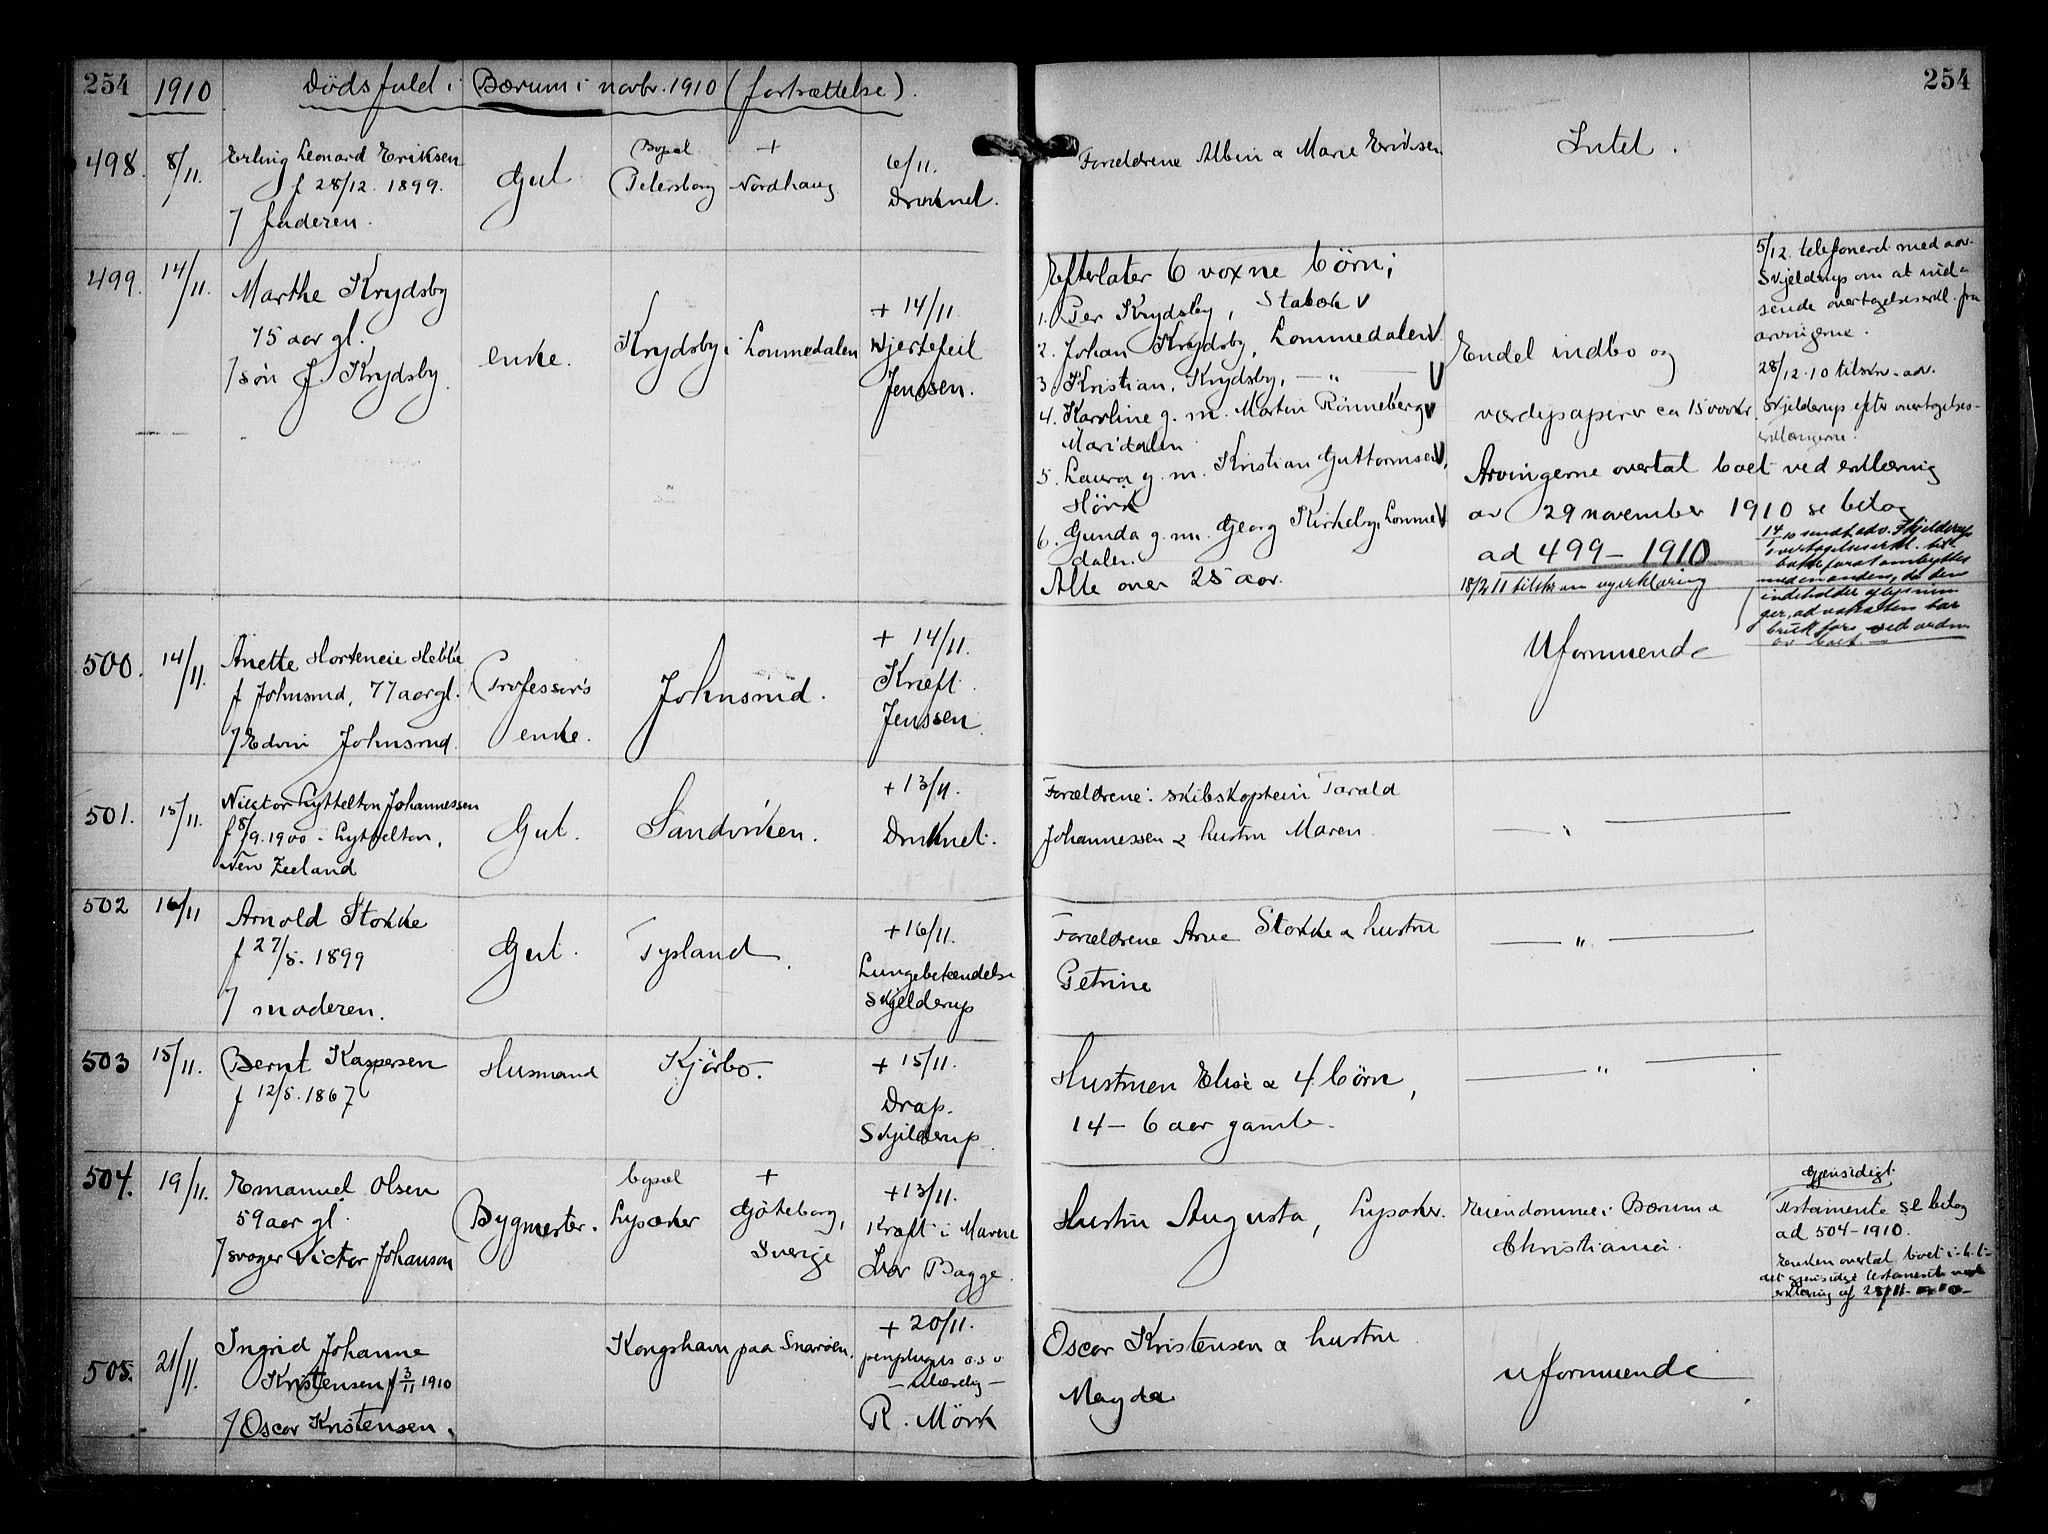 254 1910 Dödsfald i Bærum i novbr. 1910 (fortsættelse). 254
498. 8/11. Erling Leonard Eriksen
f 28/12. 1899.
/ faderen.
Gut
Bopæl +
Petersborg Nordhaug
6/11.
Druknet.
Forældrene Albin & Marie Eriksen
Intet.
499. 14/11. Marthe Krydsby
75 aar gl.
/ søn J. Krydsby.
enke.
Krydsby i Lommedalen
+ 14/11
Hjertefeil
Jenssen.
Efterlater 6 voxne børn;
1. Per Krydsby, Stabæk v
2. Johan Krydsby, Lommedalen v
3. Kristian Krydsby, — " — v
4. Karoline g. m. Martin Rönneberg v
Maridalen
5. Laura g. m. Kristian Guttormsen v,
Hörik
6. Gunda g. m. Georg Kirkeby, Lomme v
dalen.
Alle over 25 aar.
Endel indbo og
værdipapirer ca 15000 kr
Arvingerne overtat boet ved erklæring
av 29 november 1910 se bilag
ad 499 – 1910
18/2 11 tilskr om ny erklæring
5/12. telefoneret med adv.
Skjelderup om at ind-
sende overtagelseserkl. fra
arvingerne.
28/12. 10 tilskr. adv.
Skjelderup efter overtagelses-
erklæringerne.
sendt adv. Skjelderup
overtagelseserkl. til-
bake for at ombyttes
med en anden, da den
indeholder oplysnin
ger, advokaten har
bruk for ved ordn
av boet. —
500. 14/11. Anette Hortensie Hebbe
f Johnsrud, 77 aar gl.
/ Edvin Johnsrud.
Professors
enke.
Johnsrud.
+ 14/11.
Kræft.
Jenssen
Uformuende
501. 15/11. Victor Lyttelton Johannessen
f 8/9. 1900 i Lyttelton,
New Zeeland
Gut.
Sandviken.
+ 13/11.
Druknet.
Forældrene: skibskaptein Tarald
Johannessen & hustru Maren.
— " —
502 16/11 Arnold Stokke
f 27/5. 1899
/ moderen.
Gut.
Tysland.
+ 16/11.
Lungebetændelse
Skjelderup
Forældrene Arne Stokke & hustru
Petrine
— " —
503 15/11. Bernt Kaspersen
f 12/5. 1867
Husmand
Kjörbo.
+ 15/11.
Drap.
Skjelderup.
Hustruen Elise & 4 børn,
14 – 6 aar gamle.
— " —
504. 19/11. Emanuel Olsen
59 aar gl.
/ svoger Victor Johanson
Bygmester.
bopæl +
Lysaker Göteborg,
Sverige
+ 13/11.
Kræft i Maven
Ivar Bagge.
Hustru Augusta, Lysaker.
Eiendomme i Bærum &
Christiania.
Gjensidigt
Testamente se bilag
ad 504 – 1910.
Enken overtat boet i h. t.
det gjensidige testamente ved
erklæring af 28/11 1910
505. 21/11. Ingrid Johanne
Kristensen f 3/11 1910
/ Oscar Kristensen.
Kongshavn paa Snaröen.
+ 20/11.
pemphigus
R. Mörk
Oscar Kristensen & hustru
Magda
Uformuende